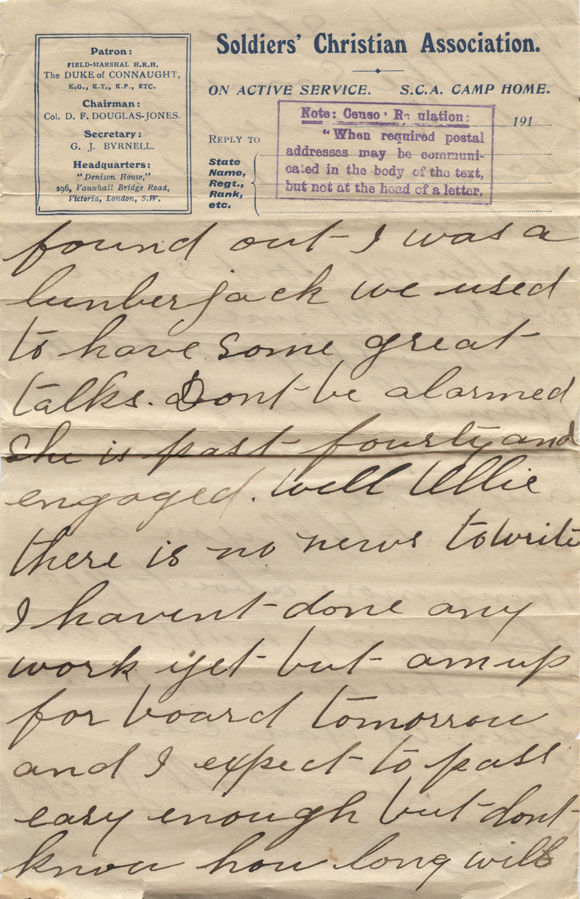 Patron:
FIELD-MARSHAL H.R.H.
The DUKE of CONNAUGHT,
K.G., K.T., K.P., ETC.
Chairman:
Col. D. F. DOUGLAS-JONES.
Secretary:
G. J. BYRNELL.
Headquarters:
"Denison House,"
296, Vauxhall Bridge Road,
Victoria, London, S.W.
Soldiers' Christian Association.
ON ACTIVE SERVICE. S.C.A. CAMP HOME.
191
REPLY TO
State
Name,
Regt.,
Rank,
etc.
Note: Censor Regulation:
"When required postal
addresses may be communi-
cated in the body of the text,
but not at the head of a letter.
found out I was a
lumberjack we used
to have some great
talks. Dont be alarmed
she is past fourty and
engaged. Well Ellie
there is no news to write
I havent done any
work yet but am up
for board tomorrow
and I expect to pass
easy enough but dont
know how long will